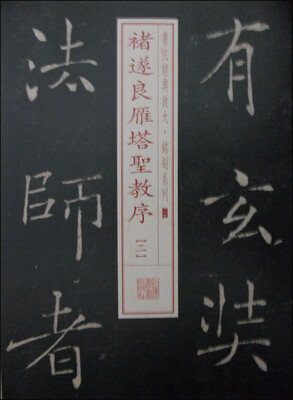 有玄奘
書法經典放大・銘刻系列
褚遂良雁塔聖教序【二】
法師者